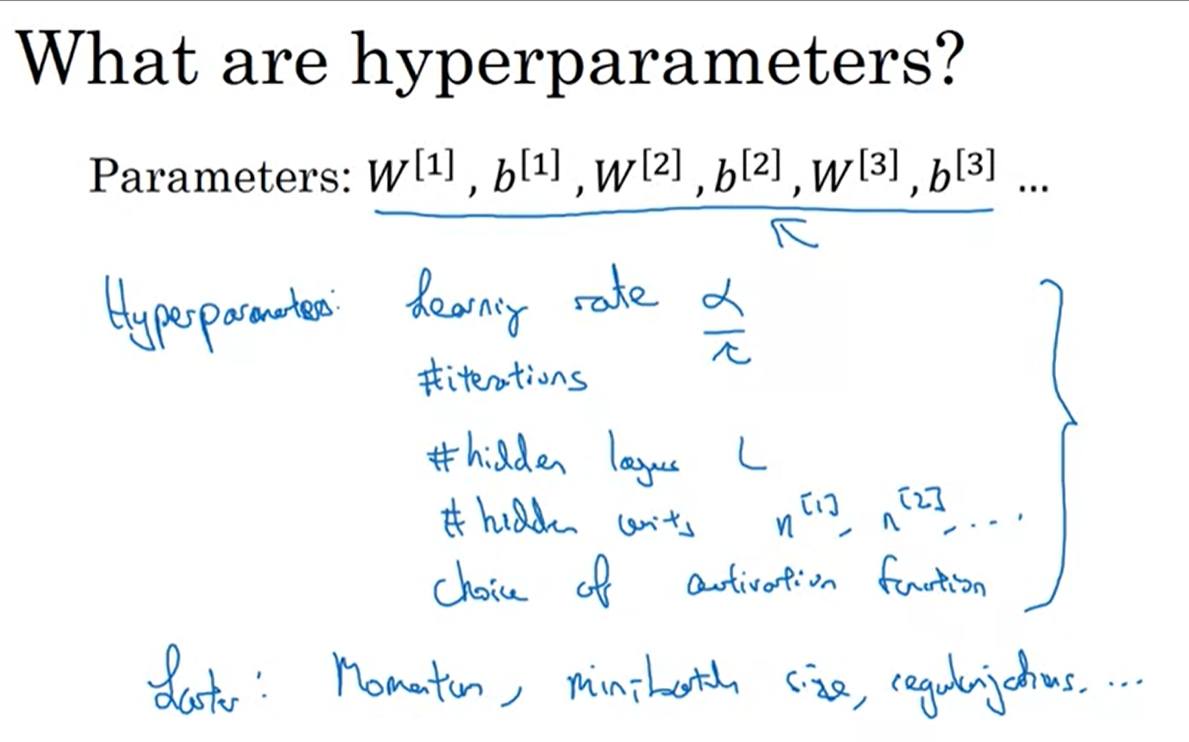 What are hyperparameters?
Parameters: W[1] , b[1] , W[2] , b[2] , W[3] , b[3] ...
Hyperparameters: Learning rate α
#iterations
#hidden layers L
# hidden units n[1], n[2], ....
Choice of activation function
Later: Momentum, minibatch size, regularizations, ...